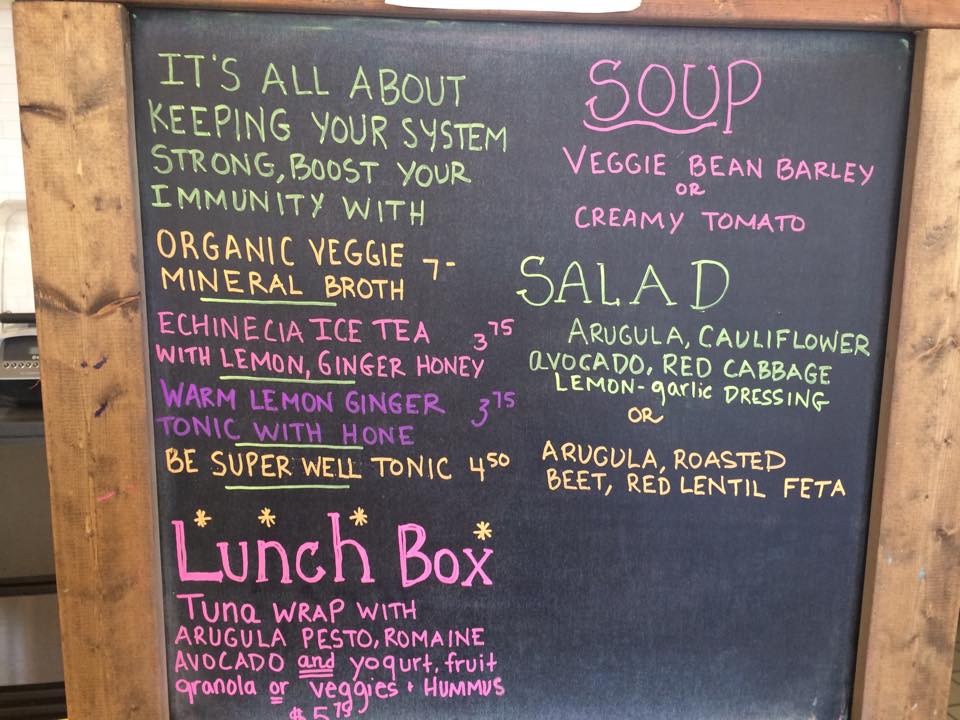 IT'S ALL ABOUT
KEEPING YOUR SYSTEM
STRONG, BOOST YOUR
IMMUNITY WITH
ORGANIC VEGGIE 7-
MINERAL BROTH
ECHINECIA ICE TEA 3 75
WITH LEMON, GINGER HONEY
WARM LEMON GINGER 3 75
TONIC WITH HONE
BE SUPER WELL TONIC 4 50
Lunch Box
Tuna WRAP WITH
ARUGULA PESTO, ROMAINE
AVOCADO and yogurt, fruit
granola or veggies + HUMMUS
$5.79
SOUP
VEGGIE BEAN BARLEY
OR
CREAMY TOMATO
SALAD
ARUGULA, CAULIFLOWER
AVOCADO, RED CABBAGE
LEMON-garlic DRESSING
OR
ARUGULA, ROASTED
BEET, RED LENTIL FETA